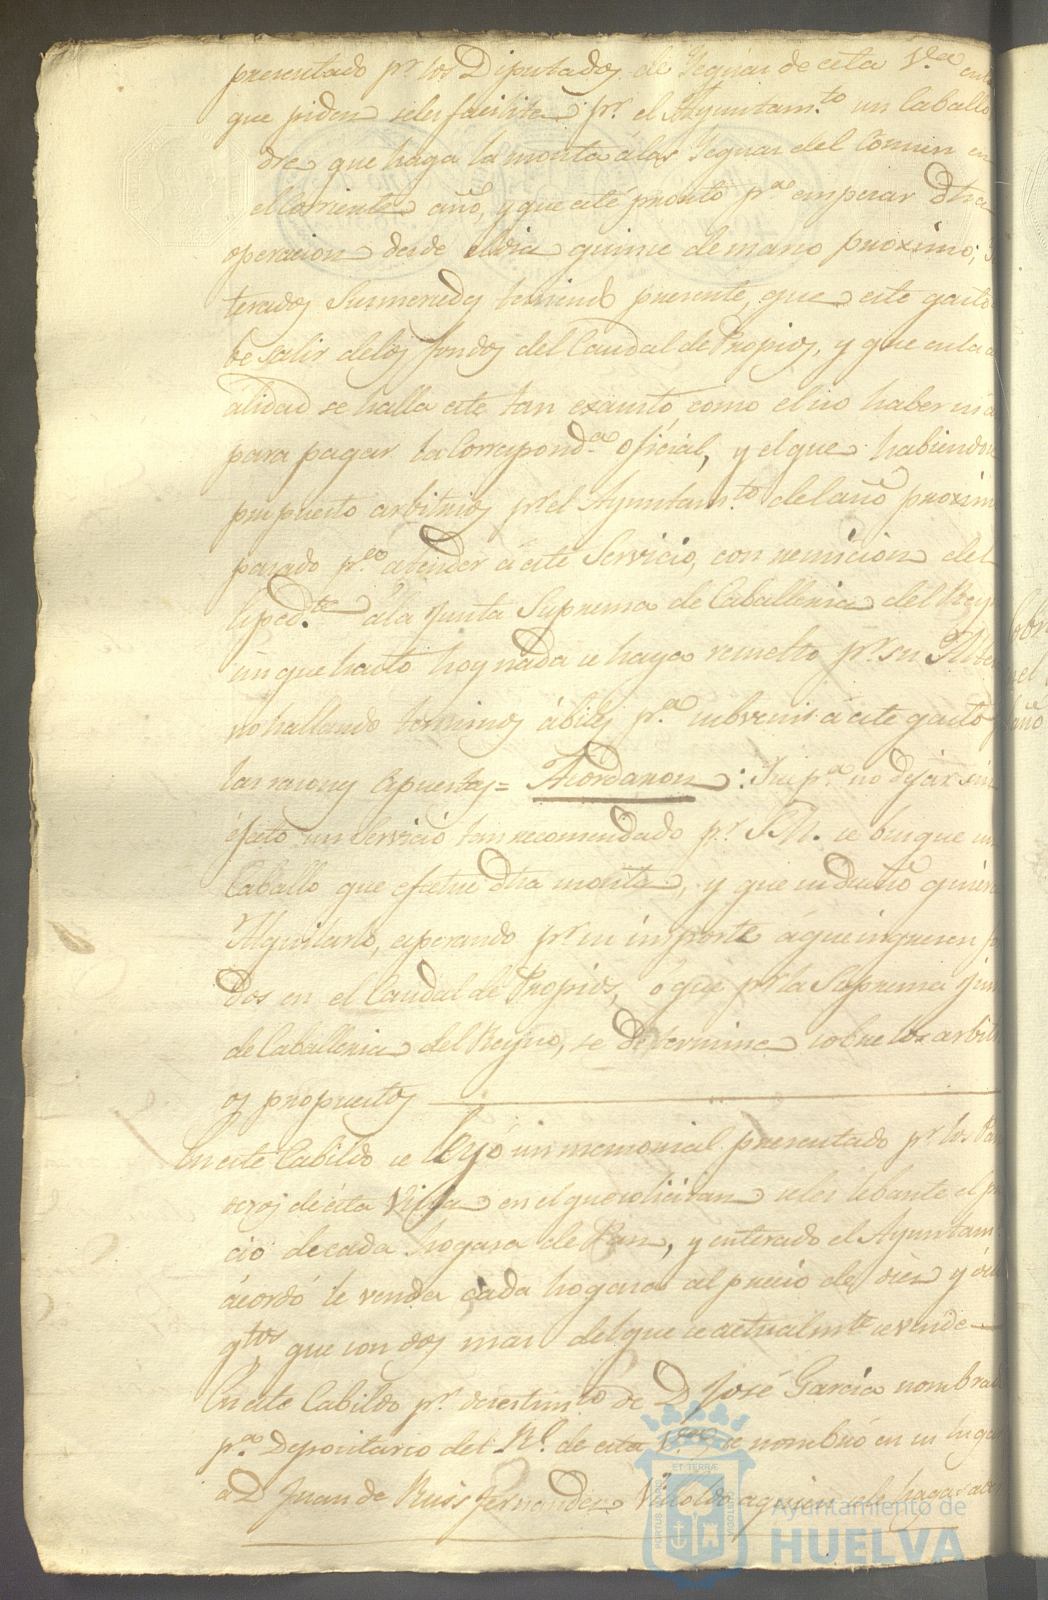 presentado pr. los Diputados de Yeguas de esta Va. en el
que piden seles facilite pr. el Ayuntamto. un Caballo
dre que haga la monta álas Yeguas del Comun en
el corriente año, y que esté pronto pa. empesar dha
operacion desde el dia quince de marzo proximo;
terados Susmercedes teniendo presente, que este gasto
be salir delos fondos del Caudal de Propios, y que en la a
alidad se halla este tan exausto como el no haber
para pagar la Correspond.a oficial, y el que habiendose
propuesto arbitrios pr. el Ayuntamto. del año proxim
pasado pa. atender á este Servicio, con remicion del
sped.te ála Junta Suprema de Caballeria del Rey
unque hasta hoy nada se haya resuelto pr. su
no hallando terminos ábiles pa. subvenir á este gasto
las razones espuestas= Acordaron: Que pa. no dejar sin
éfecto un Servicio tan recomendado pr. S.M. se busque un
Caballo que efectue dha monta, y que su dueño quiera
Alquilarlo, esperando pr. su importe á que ingresen fo
dos en el Caudal de Propios, ó que pr. la Suprema Jun
de Caballeria del Reyno, se determine sobre los arbitri
os propuestos
En este Cabildo se leyó un memorial presentado pr. los Pa
deros de esta Villa en el que solicitan seles lebante el pre
cio de cada hogasa de Pan, y enterado el Ayuntam.
acordó se venda cada hogasa al precio de dies y
qtos. que son dos mas del que se actualmte. se vende
En este Cabildo pr. desestimto. de D. José Garcia nombrado
pa. Depositario del Rl. de esta Va. se nombró en su lugar
a D Juan de Ruis Fernandes a quien se le haga
PORTUS MARIS
ET TERRÆ
CUSTODIA
Ayuntamiento de
HUELVA